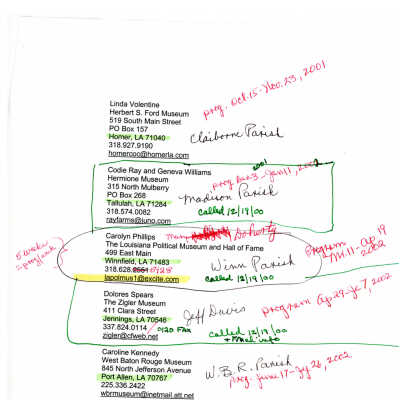 prog. Oct. 15 - Nov. 23, 2001
Linda Volentine
Herbert S. Ford Museum
519 South Main Street
PO Box 157
Homer, LA 71040
318.927.9190
homercoo@homerla.com
Claiborne Parish
Codie Ray and Geneva Williams
Hermione Museum
315 North Mulberry
PO Box 268
Tallulah, LA 71284
318.574.0082
rayfarms@juno.com
Madison Parish
called 12/19/00
Carolyn Phillips
The Louisiana Political Museum and Hall of Fame
499 East Main
Winnfield, LA 71483
318.628.
lapolmus1@excite.com
Winn Parish
called 12/19/00
Program
2002
Dolores Spears
The Zigler Museum
411 Clara Street
Jennings, LA 70546
337.824.0114
0120 Fax
zigler@cfweb.net
Jeff Davis
called 12/19/00
+ mail info
program Apr 29 - Je 7, 2002
Caroline Kennedy
West Baton Rouge Museum
845 North Jefferson Avenue
Port Allen, LA 70767
225.336.2422
wbrmuseum@inetmail.att.net
W.B.R. Parish
prog. June 17 - Jy 26, 2002